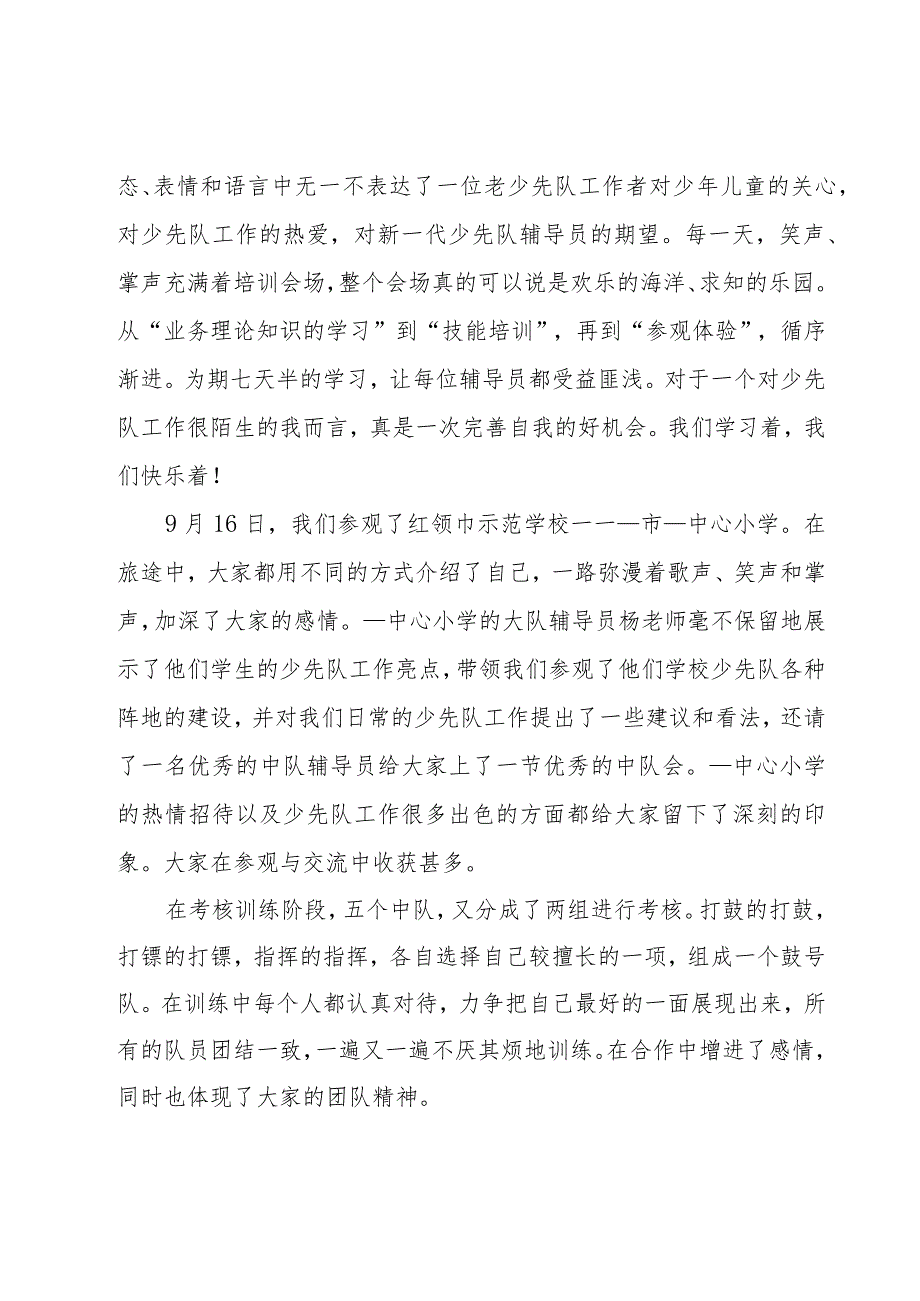 态、表情和语言中无一不表达了一位老少先队工作者对少年儿童的关心，
对少先队工作的热爱，对新一代少先队辅导员的期望。每一天，笑声、
掌声充满着培训会场，整个会场真的可以说是欢乐的海洋、求知的乐园。
从“业务理论知识的学习”到“技能培训”，再到“参观体验”，循序
渐进。为期七天半的学习，让每位辅导员都受益匪浅。对于一个对少先
队工作很陌生的我而言，真是一次完善自我的好机会。我们学习着，我
们快乐着！
9 月 16 日，我们参观了红领巾示范学校一一—市—中心小学。在
旅途中，大家都用不同的方式介绍了自己，一路弥漫着歌声、笑声和掌
声，加深了大家的感情。—中心小学的大队辅导员杨老师毫不保留地展
示了他们学生的少先队工作亮点，带领我们参观了他们学校少先队各种
阵地的建设，并对我们日常的少先队工作提出了一些建议和看法，还请
了一名优秀的中队辅导员给大家上了一节优秀的中队会。—中心小学
的热情招待以及少先队工作很多出色的方面都给大家留下了深刻的印
象。大家在参观与交流中收获甚多。
在考核训练阶段，五个中队，又分成了两组进行考核。打鼓的打鼓，
打镖的打镖，指挥的指挥，各自选择自己较擅长的一项，组成一个鼓号
队。在训练中每个人都认真对待，力争把自己最好的一面展现出来，所
有的队员团结一致，一遍又一遍不厌其烦地训练。在合作中增进了感情，
同时也体现了大家的团队精神。